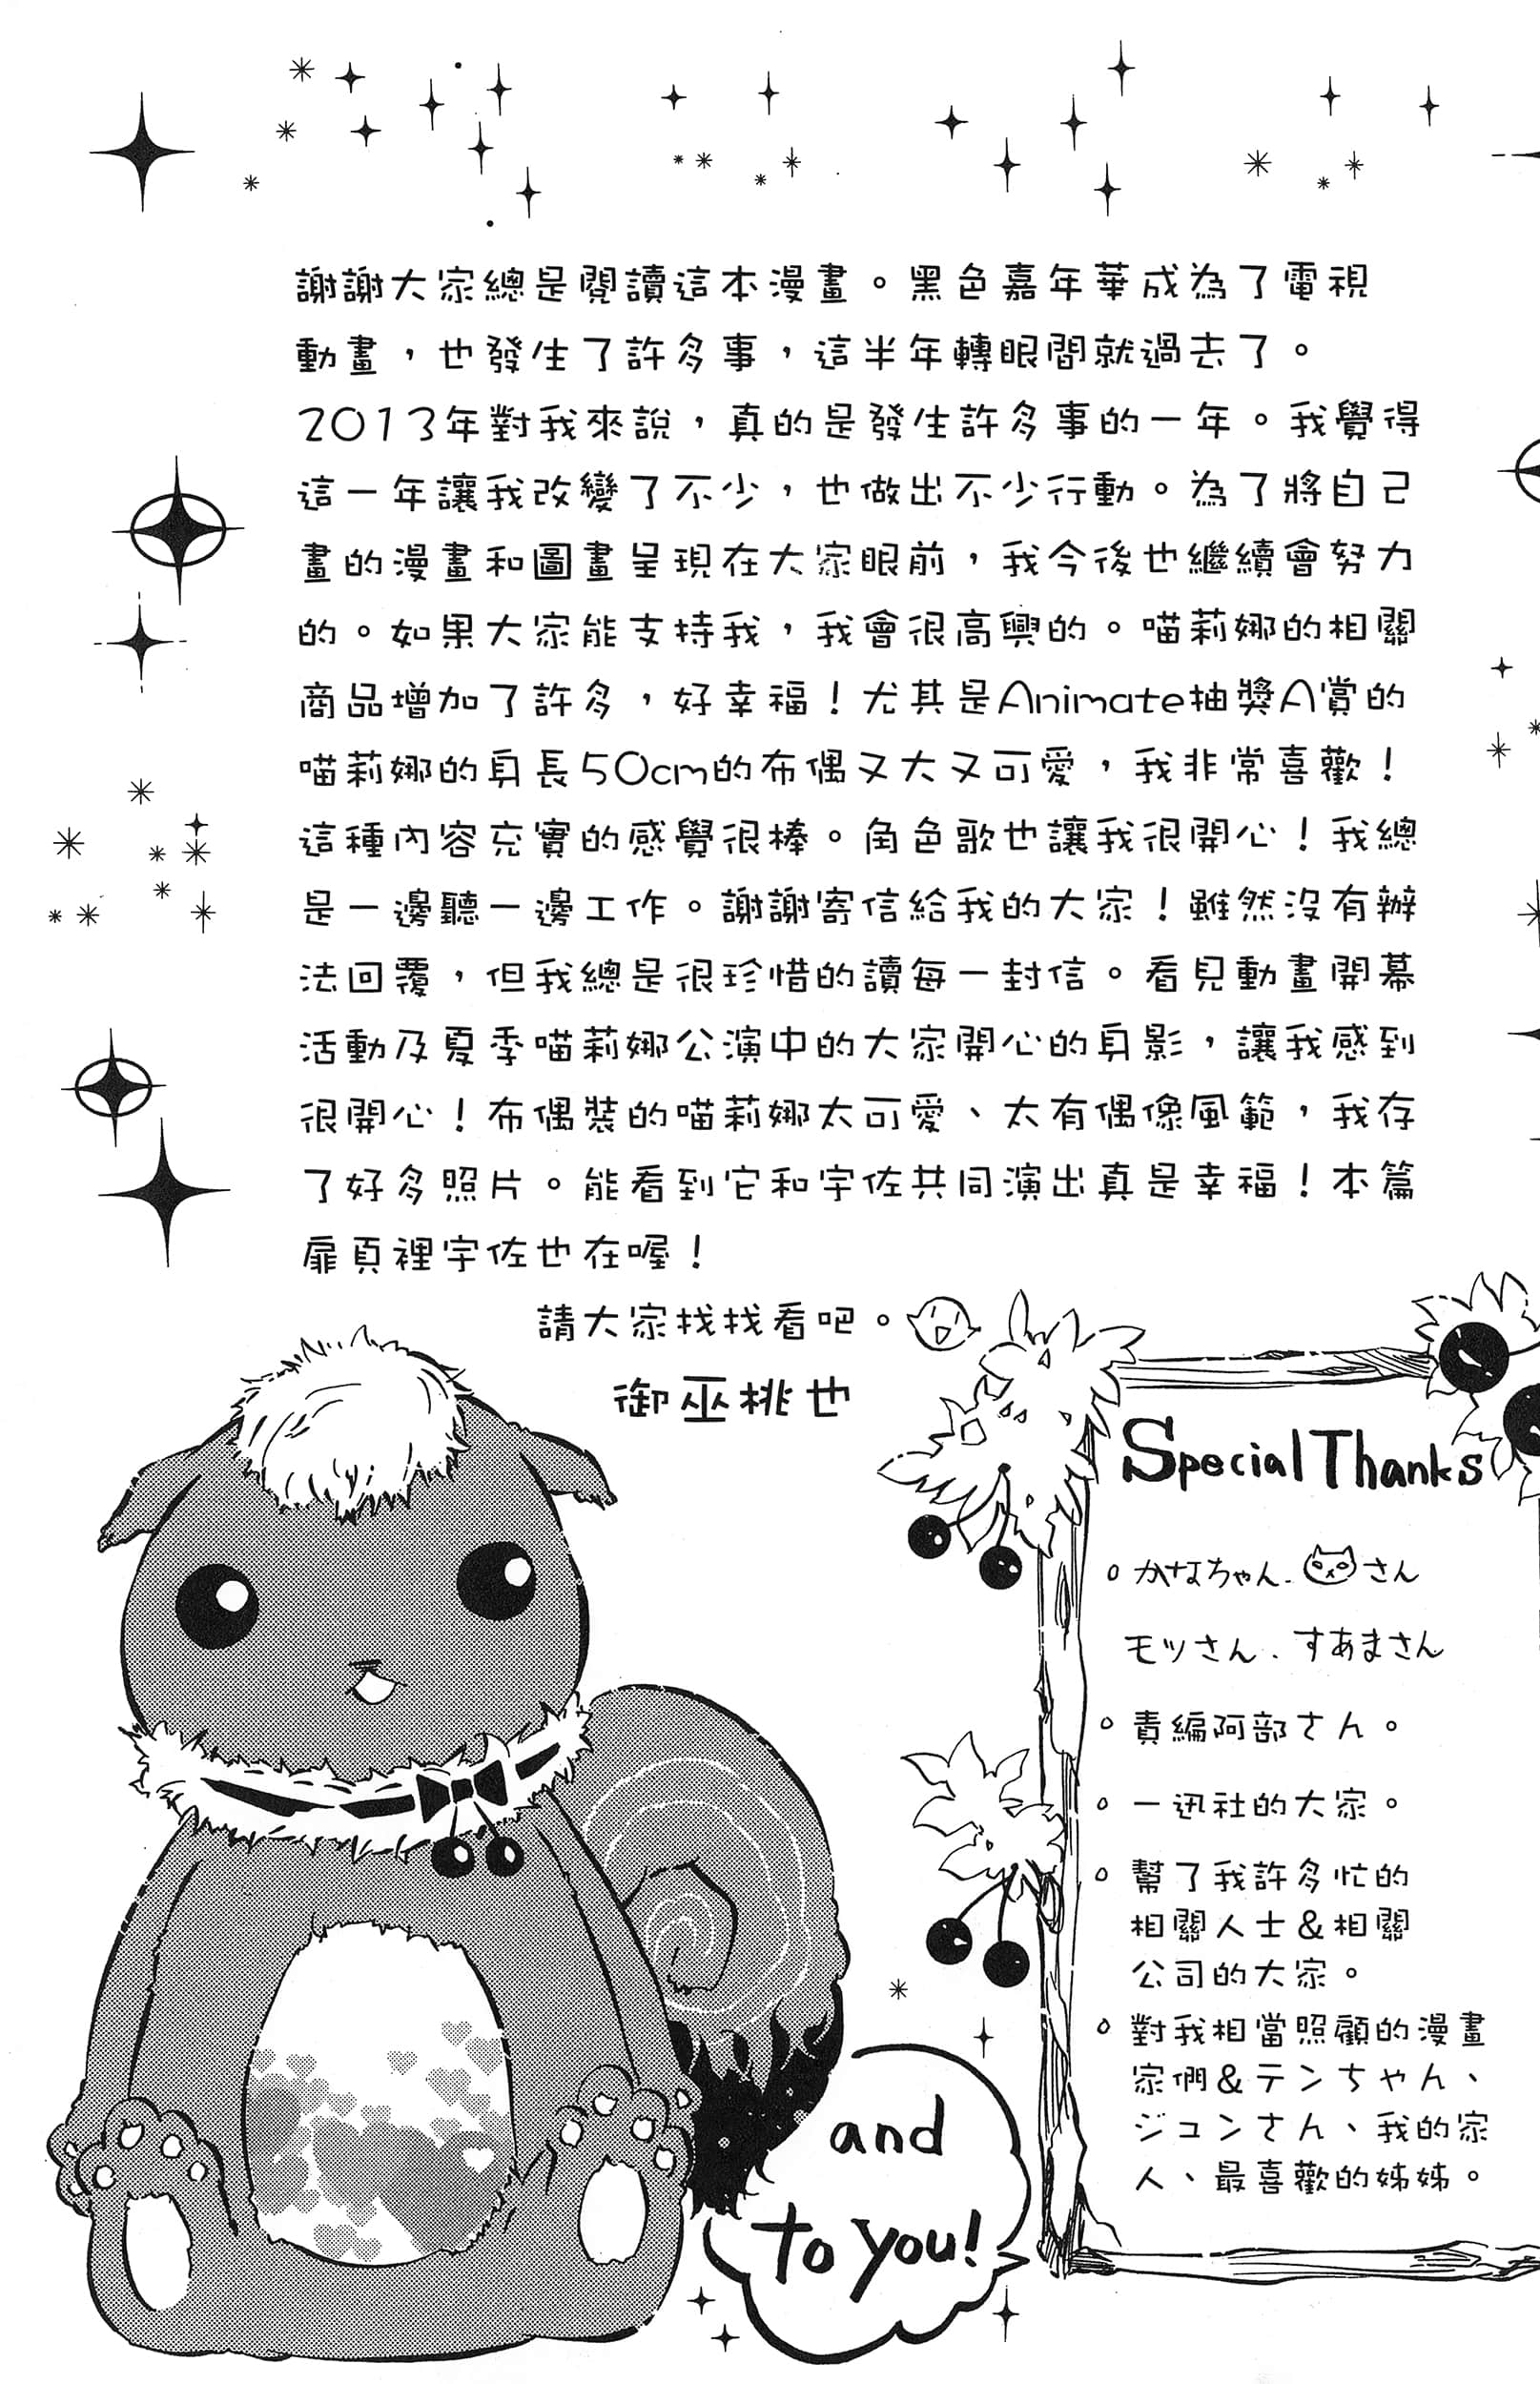 謝謝大家總是閱讀這本漫畫。黑色嘉年華成為了電視
動畫，也發生了許多事，這半年轉眼間就過去了。
2013年對我來說，真的是發生許多事的一年。我覺得
這一年讓我改變了不少，也做出不少行動。為了將自己
畫的漫畫和圖畫呈現在大家眼前，我今後也繼續會努力
的。如果大家能支持我，我會很高興的。喵莉娜的相關
商品增加了許多，好幸福！尤其是Animate抽獎A賞的
喵莉娜的身長50cm的布偶又大又可愛，我非常喜歡！
這種內容充實的感覺很棒。角色歌也讓我很開心！我總
是一邊聽一邊工作。謝謝寄信給我的大家！雖然沒有辦
法回覆，但我總是很珍惜的讀每一封信。看見動畫開幕
活動及夏季喵莉娜公演中的大家開心的身影，讓我感到
很開心！布偶裝的喵莉娜太可愛、太有偶像風範，我存
了好多照片。能看到它和宇佐共同演出真是幸福！本篇
扉頁裡宇佐也在喔！
請大家找找看吧。
御巫桃也
Special Thanks
かなちゃん. さん
モツさん. すあまさん
責編阿部さん。
一迅社的大家。
幫了我許多忙的
相關人士＆相關
公司的大家。
對我相當照顧的漫畫
家們＆テンちゃん、
ジュンさん、我的家
人、最喜歡的姊姊。
and
to you!